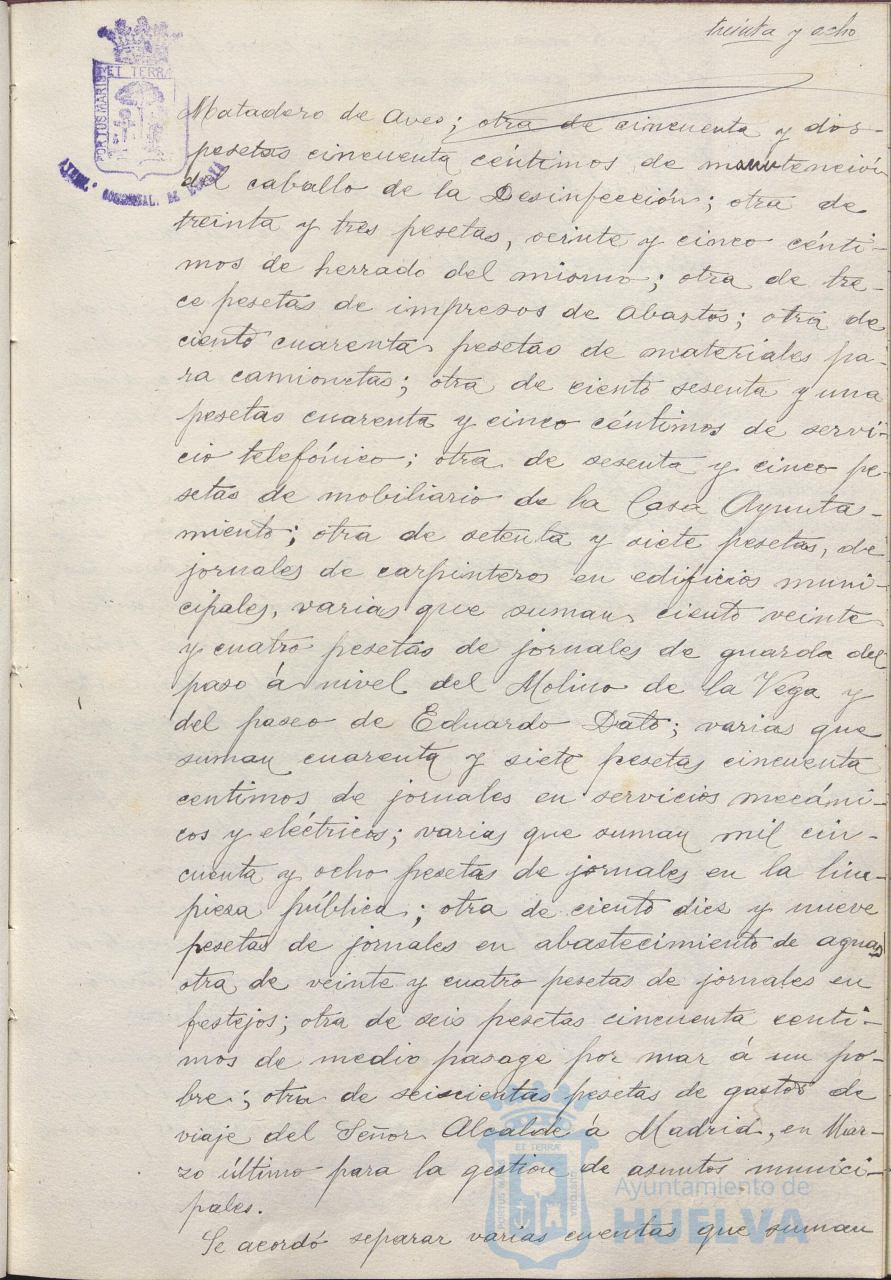 treinta y ocho
PORTUS MARIS ET TERRÆ
AYUN. MUNICIPAL. DE HUELVA
Matadero de Aves; otra de cincuenta y dos
pesetas cincuenta céntimos de manutención
del caballo de la Desinfección; otra de
treinta y tres pesetas, veinte y cinco cénti-
mos de herrado del mismo; otra de tre-
ce pesetas de impresos de Abastos; otra de
ciento cuarenta pesetas de materiales pa-
ra camionetas; otra de ciento sesenta y una
pesetas cuarenta y cinco céntimos de servi-
cio telefónico; otra de sesenta y cinco pe-
setas de mobiliario de la Casa Ayunta-
miento; otra de setenta y siete pesetas, de
jornales de carpinteros en edificios muni-
cipales, varias que suman ciento veinte
y cuatro pesetas de jornales de guarda del
paso á nivel del Molino de la Vega y
del paseo de Eduardo Dato; varias que
suman cuarenta y siete pesetas cincuenta
centimos de jornales en servicios mecáni-
cos y eléctricos; varias que suman mil cin-
cuenta y ocho pesetas de jornales en la lim-
pieza pública; otra de ciento diez y nueve
pesetas de jornales en abastecimiento de aguas
otra de veinte y cuatro pesetas de jornales en
festejos; otra de seis pesetas cincuenta centi-
mos de medio pasage por mar á un po-
bre; otra de seiscientas pesetas de gastos de
viaje del Señor Alcalde á Madrid, en Mar-
zo último para la gestión de asuntos munici-
pales.
Se acordó separar varias cuentas que suman
Ayuntamiento de
HUELVA